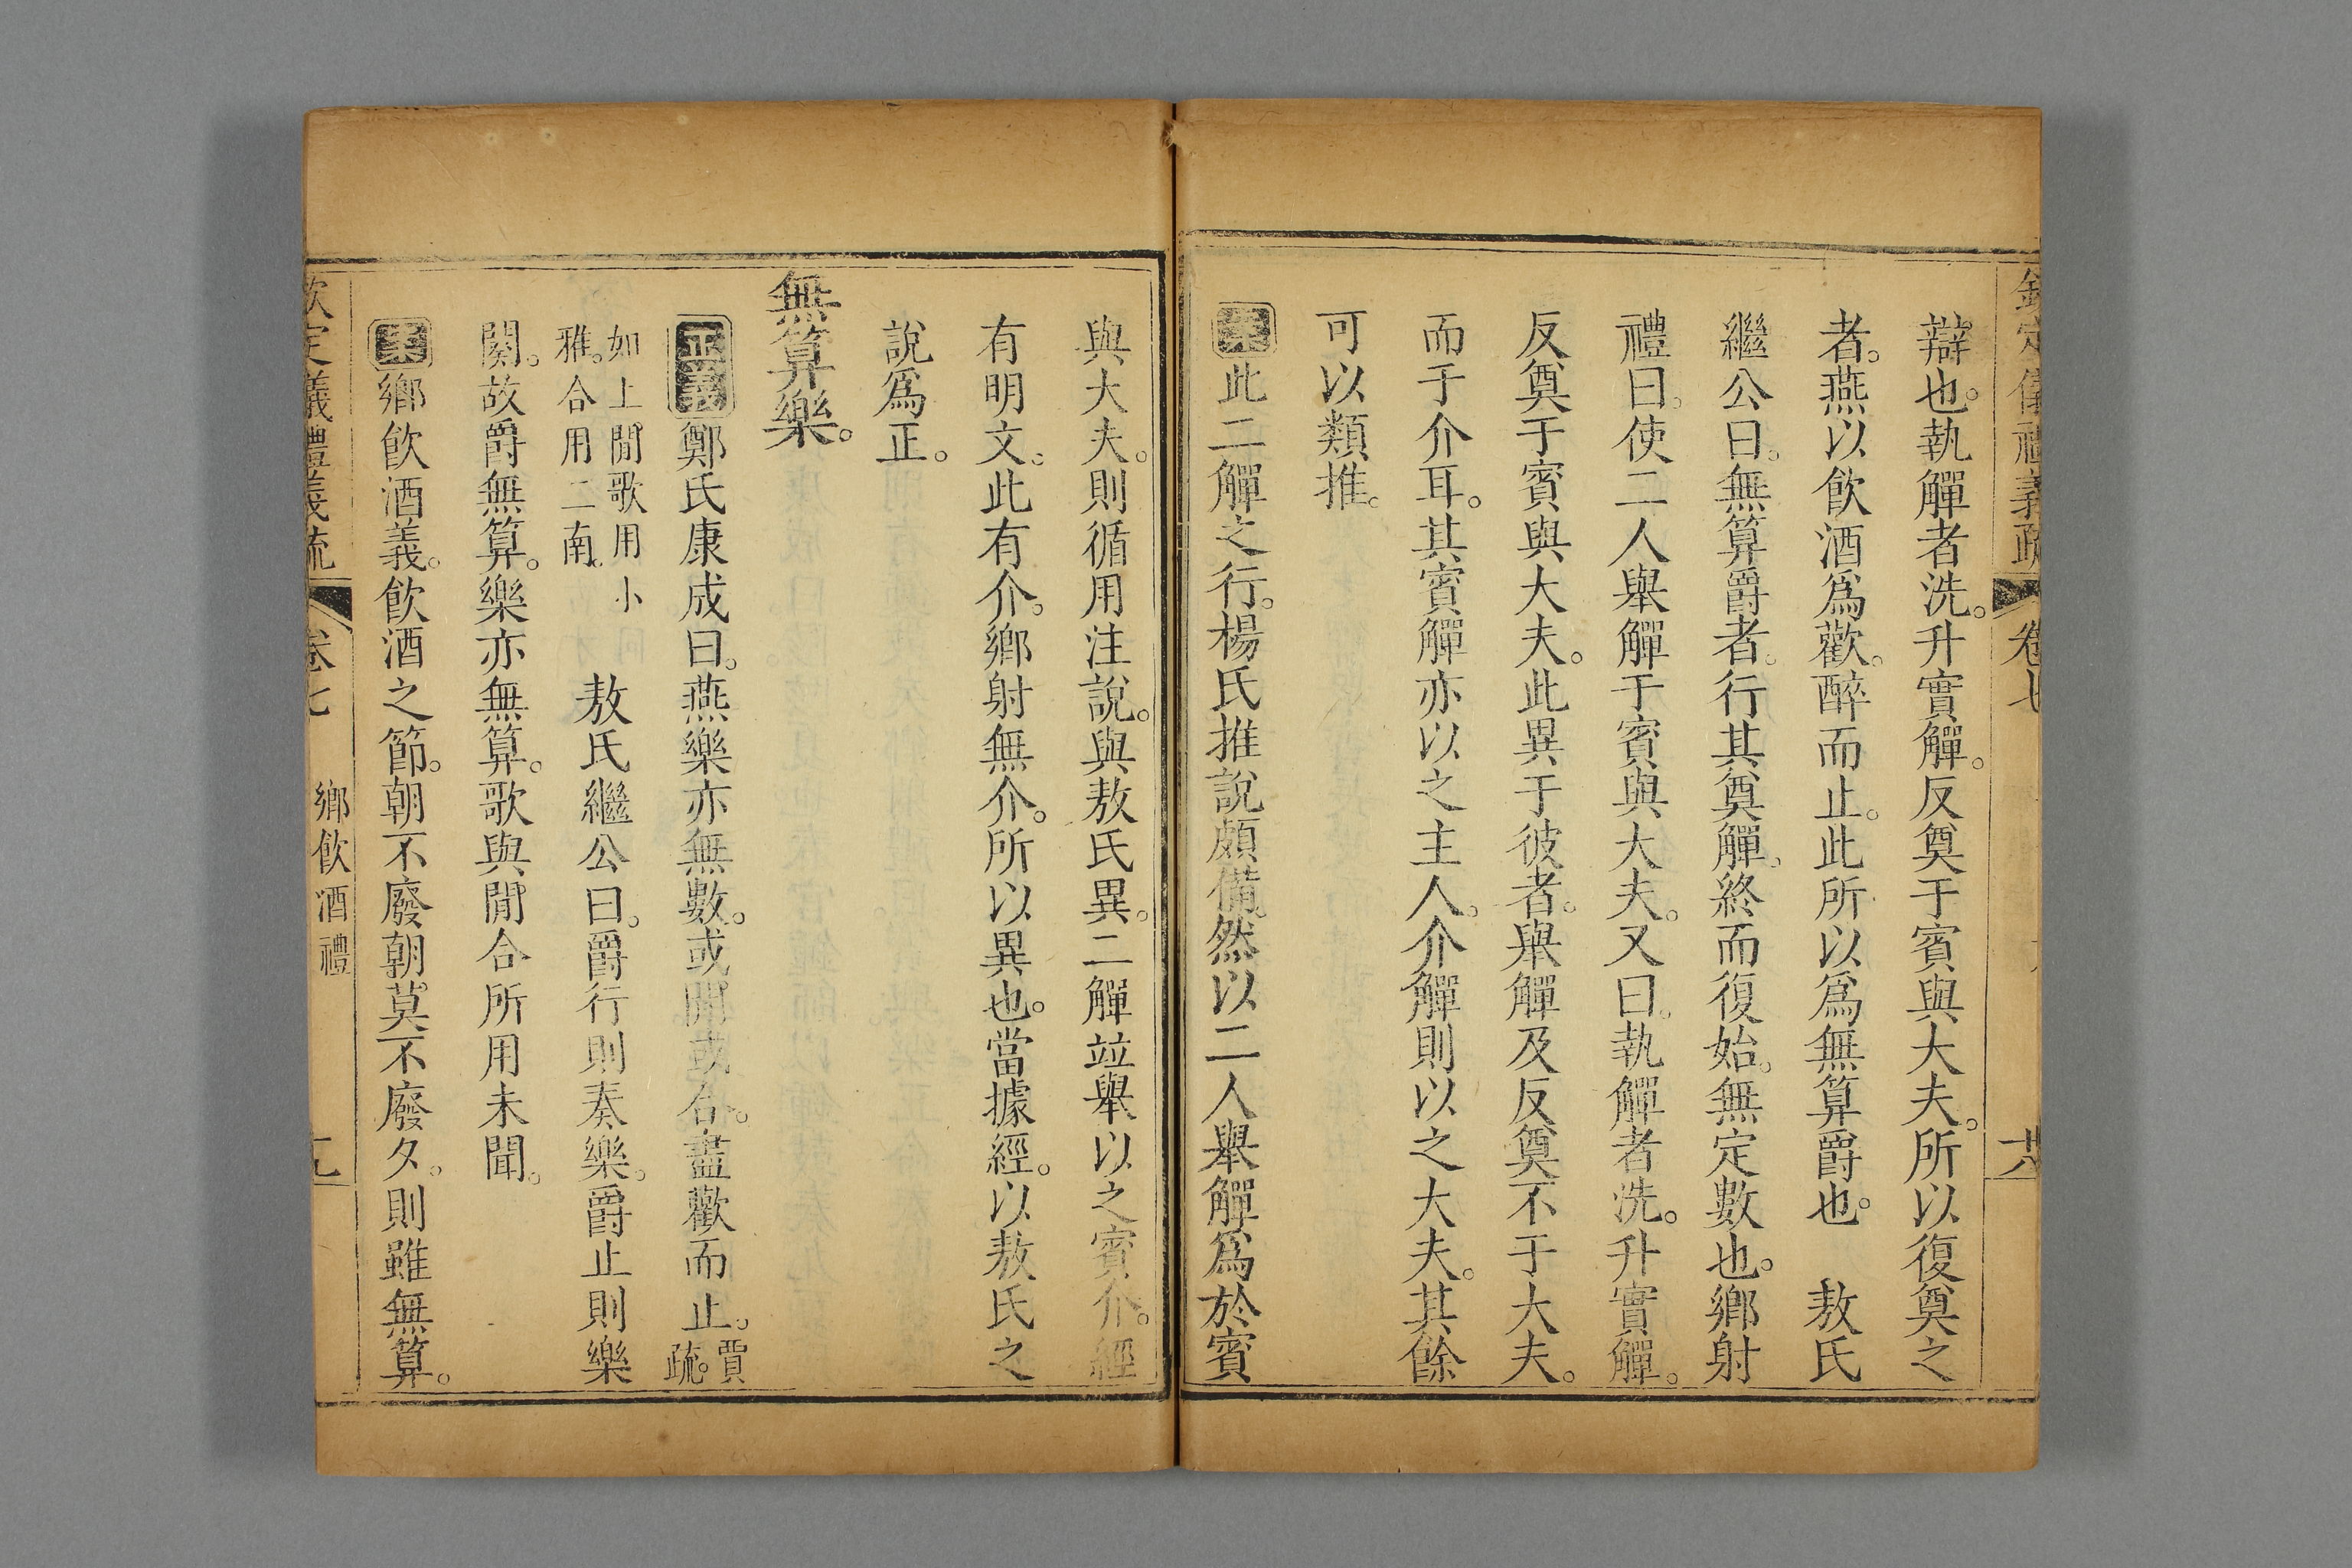 欽定儀禮義疏 卷七 
辯也。執觶者洗。升實觶。反奠于賓與大夫。所以復奠之
者。燕以飲酒爲歡。醉而止。此所以爲無算爵也 敖氏
繼公曰。無算爵者。行其奠觶。終而復始。無定數也。鄉射
禮曰。使二人舉觶于賓與大夫。又曰。執觶者洗。升實觶。
反奠于賓與大夫。此異于彼者。舉觶及反奠不于大夫。
而于介耳。其賓觶亦以之主人。介觶則以之大夫。其餘
可以類推。
案此二觶之行。楊氏推說頗備。然以二人舉觶爲於賓
與大夫。則循用注說。與敖氏異。二觶竝舉以之賓介。經
有明文。此有介。鄉射無介。所以異也。當據經。以敖氏之
說爲正。
無算樂。
正義鄭氏康成曰。燕樂亦無數。或閒或合。盡歡而止。賈疏。
如上閒歌用小雅。合用二南。 敖氏繼公曰。爵行則奏樂。爵止則樂
闋。故爵無算。樂亦無算。歌與閒合所用未聞。
案鄉飲酒義。飲酒之節。朝不廢朝。莫不廢夕。則雖無算。
欽定儀禮義疏 卷七 鄉飲酒禮